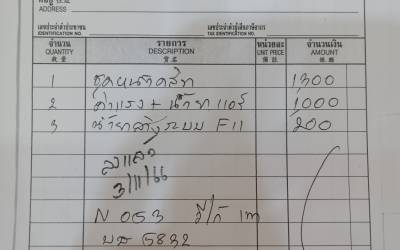 ADDRESS
เลขประจำตัวประชาชน เลขประจำตัวผู้เสียภาษีอากร
IDENTIFICATION NO. TAX IDENTIFICATION NO.
จำนวน รายการ หน่วยละ จำนวนเงิน
QUANTITY DESCRIPTION UNIT PRICE AMOUNT
數量 貨名 價 銀
1 ชุดหน้าคลัท 1300
2 ค่าแรง + น้ำยาแอร์ 1000
3 น้ำยาล้างระบบ F11 200
ลงแล้ว
3/11/66
N 053 วีโก้
บม 5832